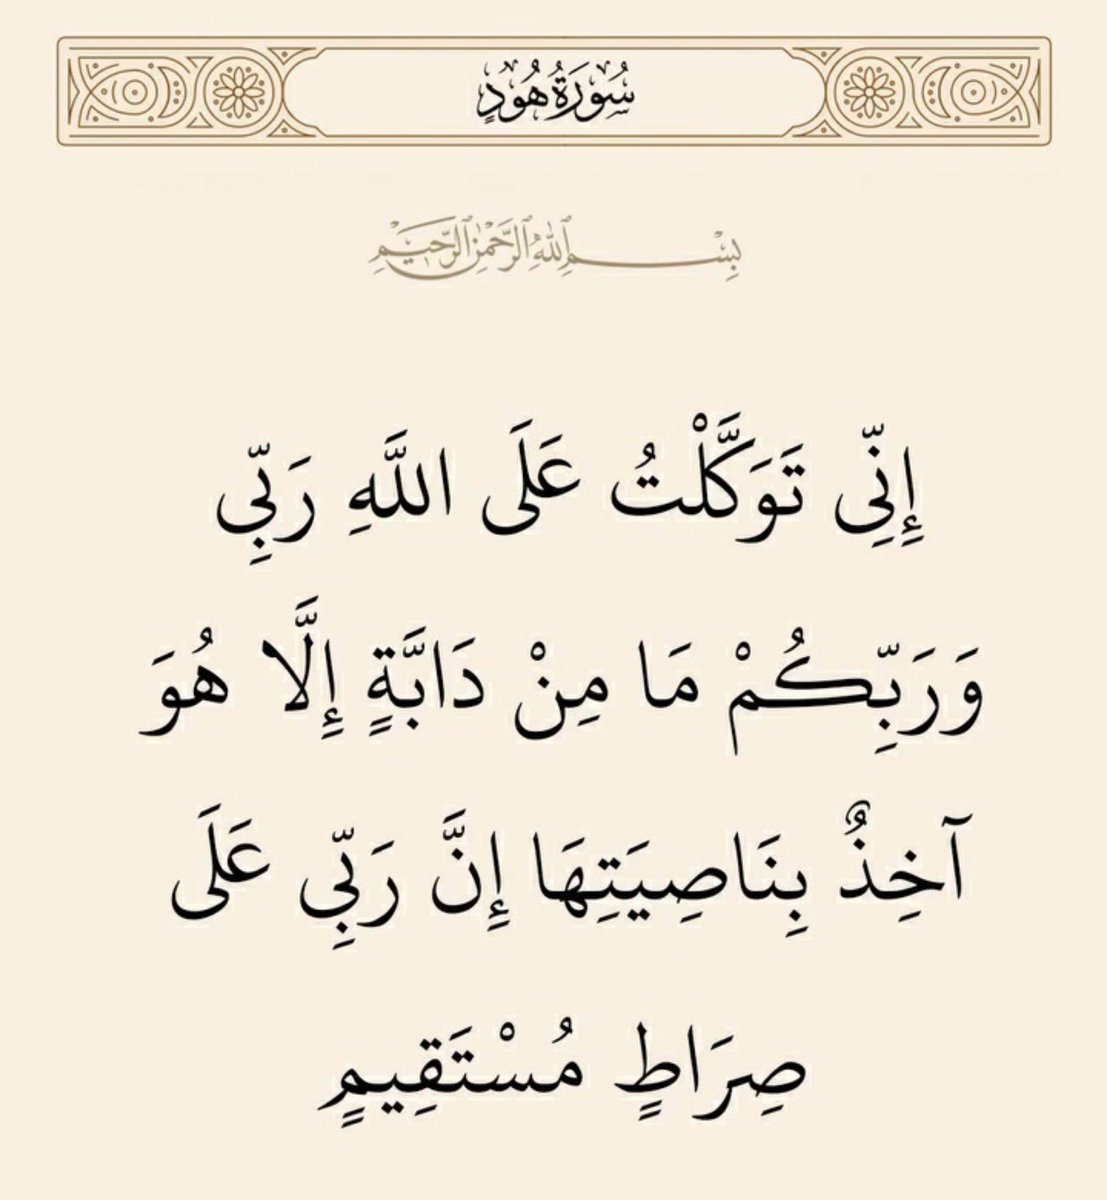 سُورَةُ هُودٍ
بِسْمِ ٱللَّهِ ٱلرَّحْمَٰنِ ٱلرَّحِيمِ
إِنِّى تَوَكَّلْتُ عَلَى اللَّهِ رَبِّى
وَرَبِّكُمْ مَا مِنْ دَابَّةٍ إِلَّا هُوَ
آخِذٌ بِنَاصِيَتِهَا إِنَّ رَبِّى عَلَى
صِرَاطٍ مُسْتَقِيمٍ